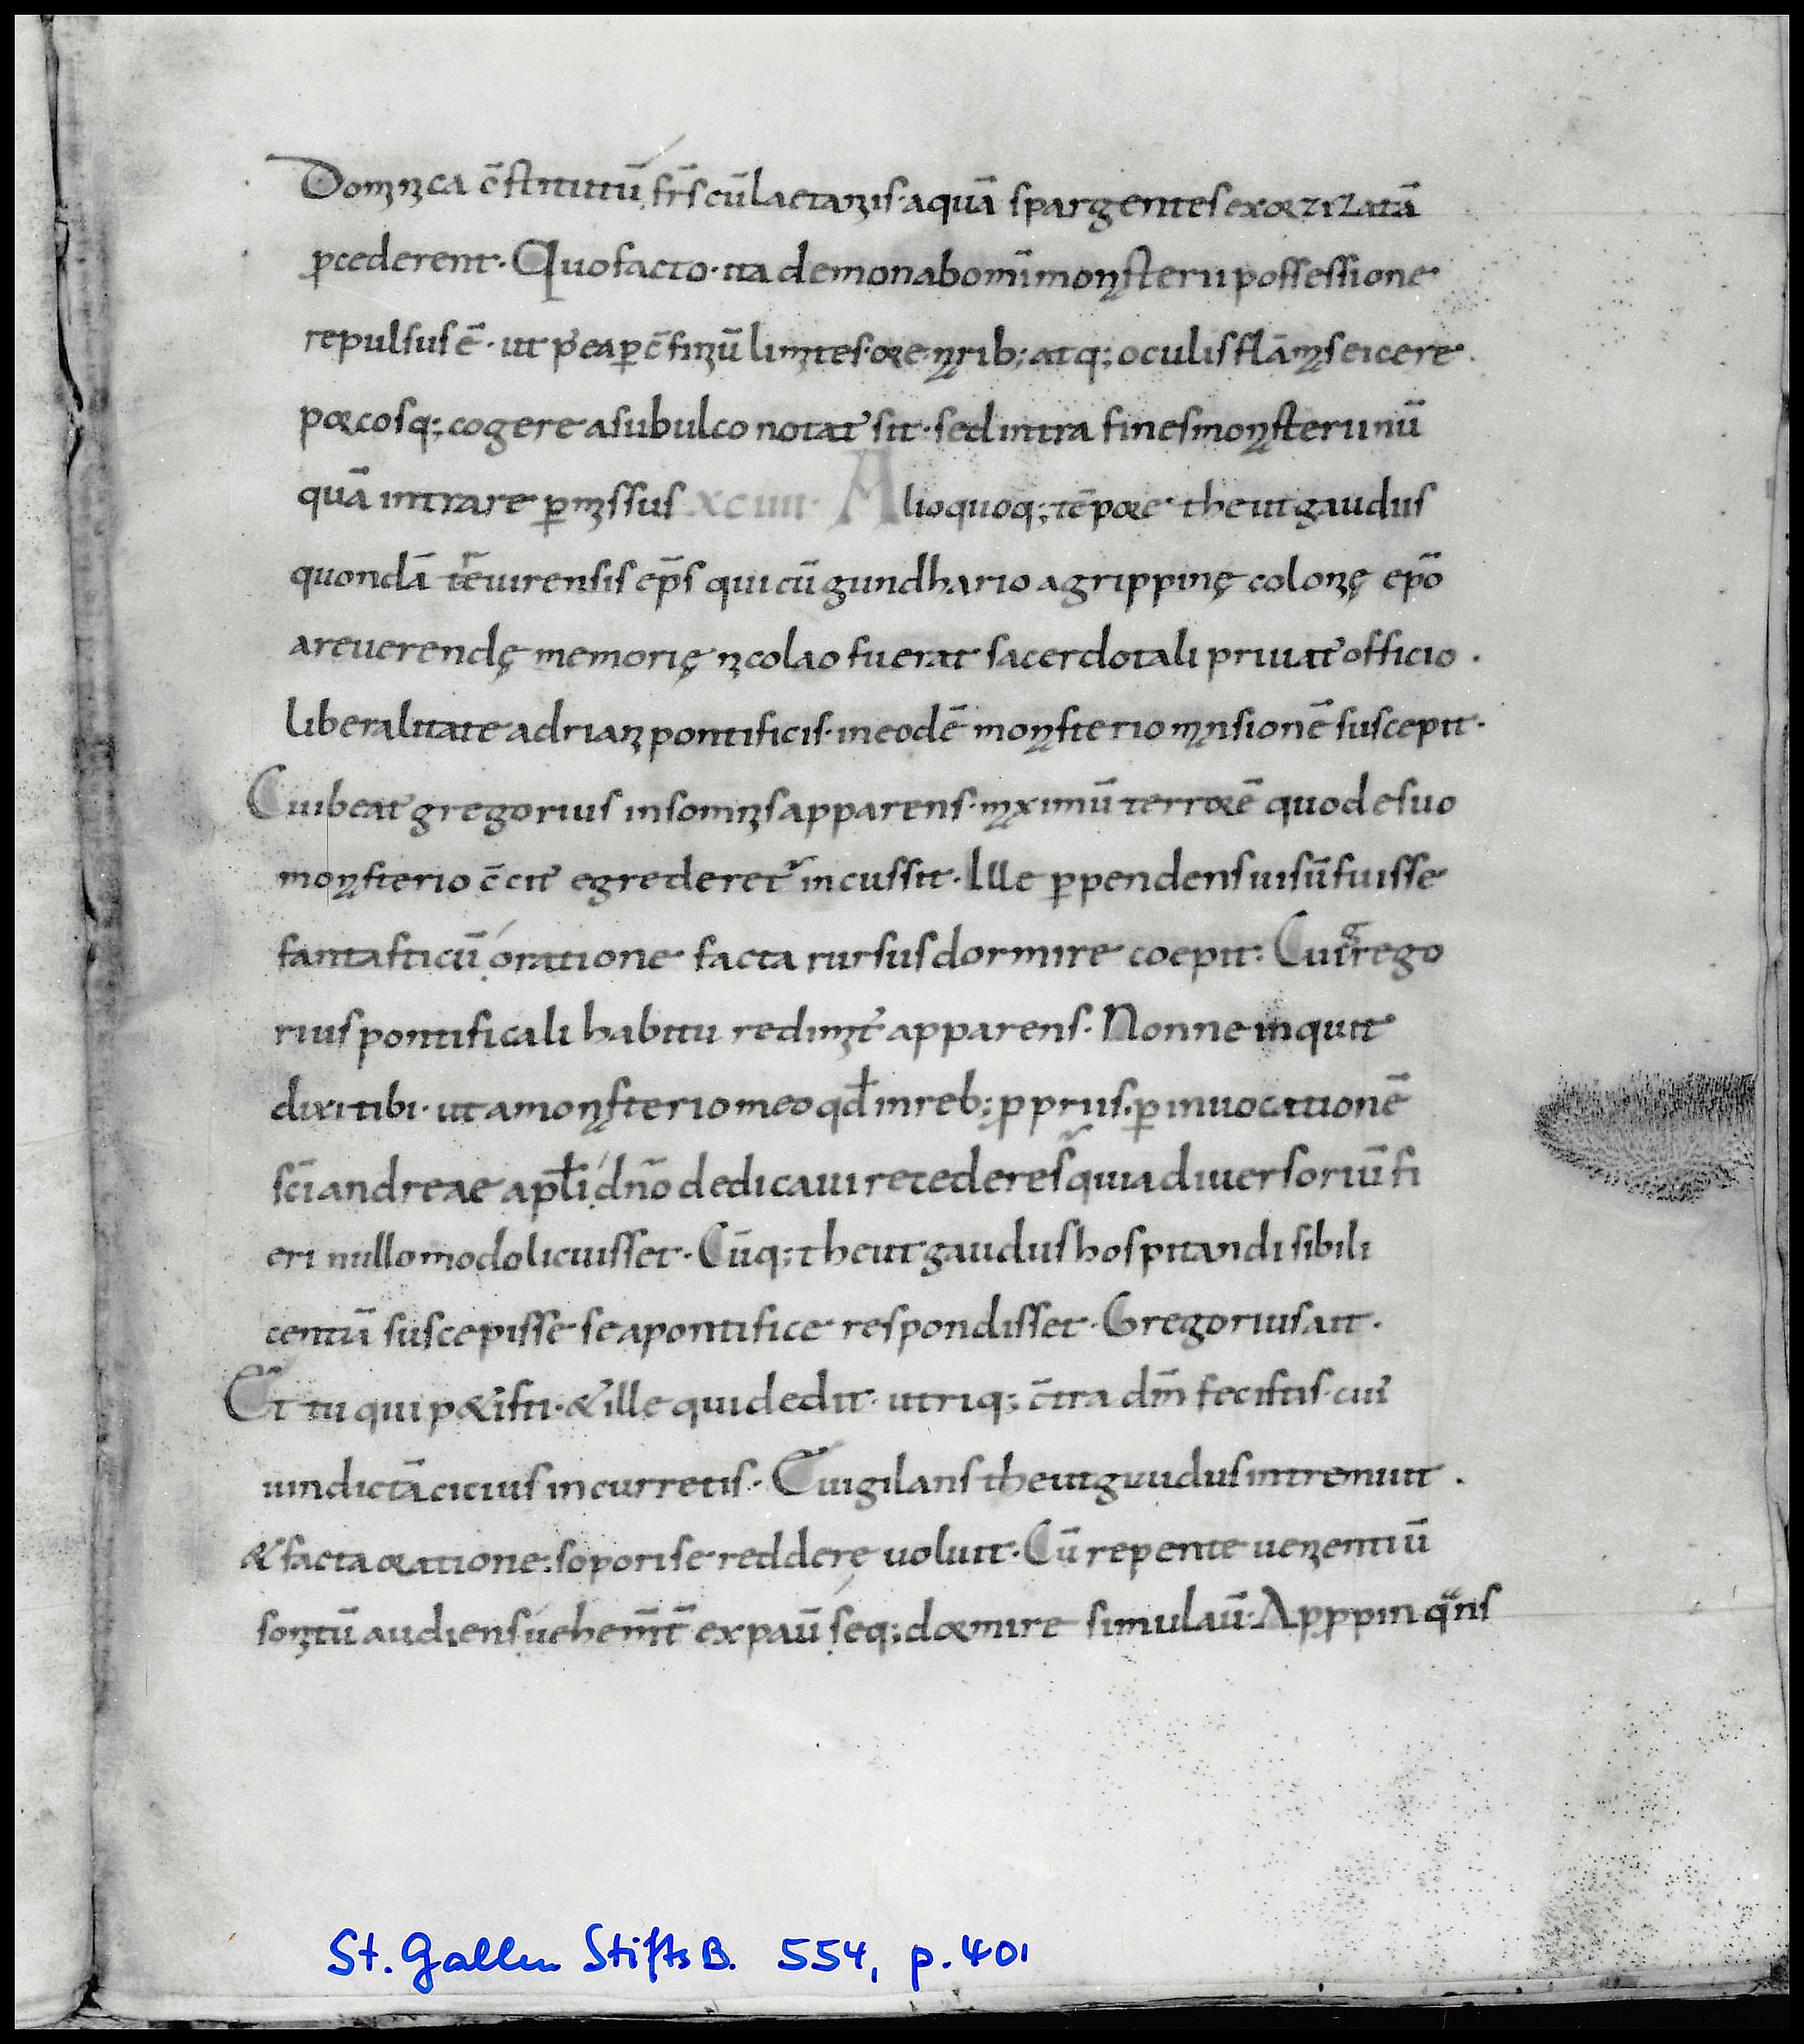 Dominica c̄stitutū fr̄s cū laetaniis· aquā spargentes exorzizatā
p̲cederent· Quo facto· ita demon ab omī monasterii possessione
repulsus ē· ut p̓ea p̲ c̄finiū limites· ore narib; atq; oculis flāmas eicere
porcosq; cogere a subulco notat᾽ sit· sed intra fines monasterii nū
quā intrare p̲missus XCIIII· Alio quoq; tēpore theutgaudus
quondā tr̄evirensis ep̄s qui cū gundhario agrippinę colonię ep̄o
a reverendę memorię nicolao fuerat sacerdotali privat᾽ officio·
liberalitate adriani pontificis· in eodē monasterio mansionē suscepit·
Cui beat᾽ gregorius in somnis apparens· maximū terrorē quo de suo
monasterio c̄cit᾽ egrederet᾽ incussit· Ille p̲pendens visū fuisse
fantasticū oratione facta rursus dormire coepit· Cui grego
rius pontificali habitu redimit᾽ apparens· Nonne inquit
dixi tibi· ut a monasterio meo qđ in reb; p̲priis· p̲ invocationē
sc̄i andreae apłi dn̄o dedicavi recederes quia diversoriū fi
eri nullo modo licuisset· Cūq; theutgaudus hospitandi sibi li
centiā suscepisse se a pontifice respondisset· Gregorius ait·
Et tu qui p&isti· & ille qui dedit· utriq; c̄tra dm̄ fecistis· cui᾽
vindictā citius incurretis· Evigilans theutgaudus intremuit·
& facta oratione; sopori se reddere voluit· Cū repente venientiū
sonitū audiens vehem̄t̄ expav̄ seq; dormire simulav̄· At p̲pinqans
St. Gallen StiftsB. 554, p. 401